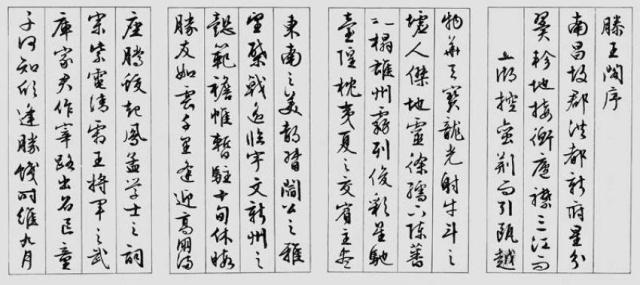 滕王阁序
南昌故郡洪都新府星分
翼軫地接衡廬襟三江而
五湖控蛮荆而引瓯越
物華天寶龍光射牛斗之
墟人傑地靈徐孺下陈蕃
之榻雄州霧列俊彩星馳
臺隍枕夷夏之交賓主尽
東南之美都督閻公之雅
望棨戟遥临宇文新州之
懿範襜帷暫駐十旬休暇
勝友如雲千里逢迎高朋满
座騰蛟起鳳孟学士之詞
宗紫電清霜王將軍之武
庫家君作宰路出名區童
子何知躬逢勝餞时維九月